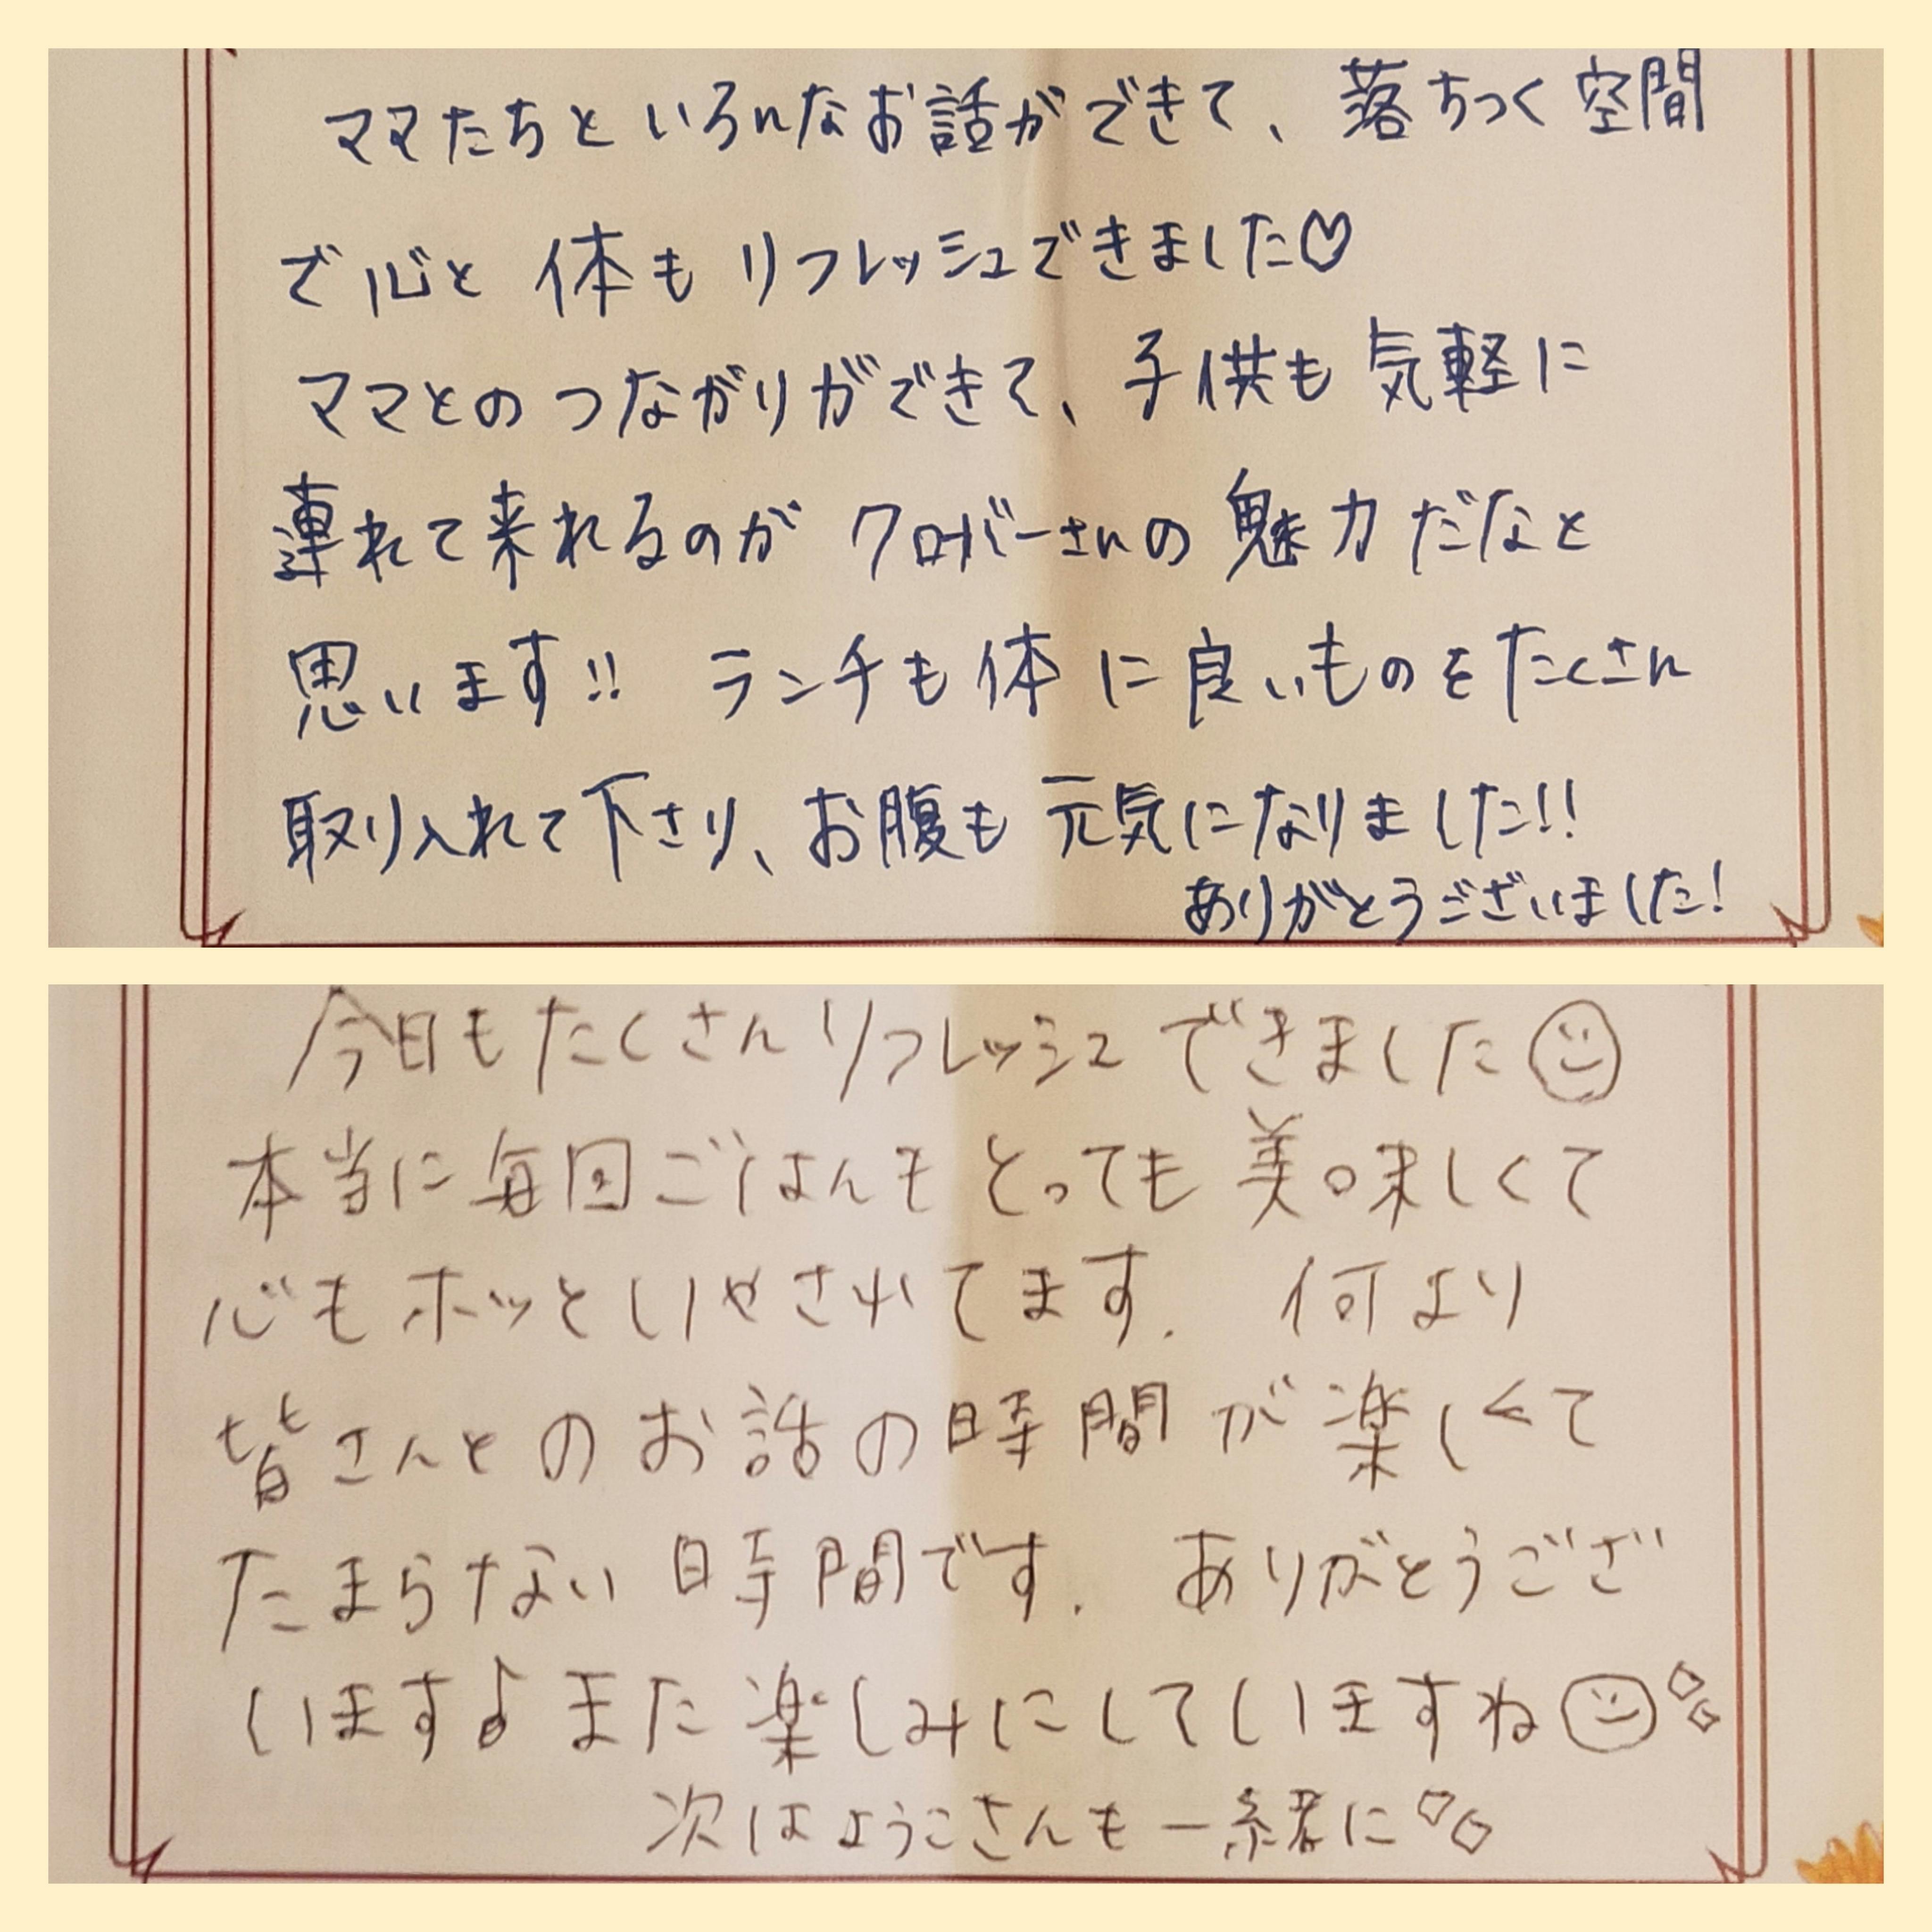 ママたちといろんなお話ができて、落ちつく空間
で心と体もリフレッシュできました♡
ママとのつながりができて、子供も気軽に
連れて来れるのがクローバーさんの魅力だなと
思います!! ランチも体に良いものをたくさん
取り入れて下さり、お腹も元気になりました!!
ありがとうございました!
今日もたくさんリフレッシュできました☺
本当に毎回ごはんもとっても美味しくて
心もホッといやされてます. 何より
皆さんとのお話の時間が楽しくて
たまらない時間です. ありがとうござ
います♪また楽しみにしていますね☺
次はようこさんも一緒に